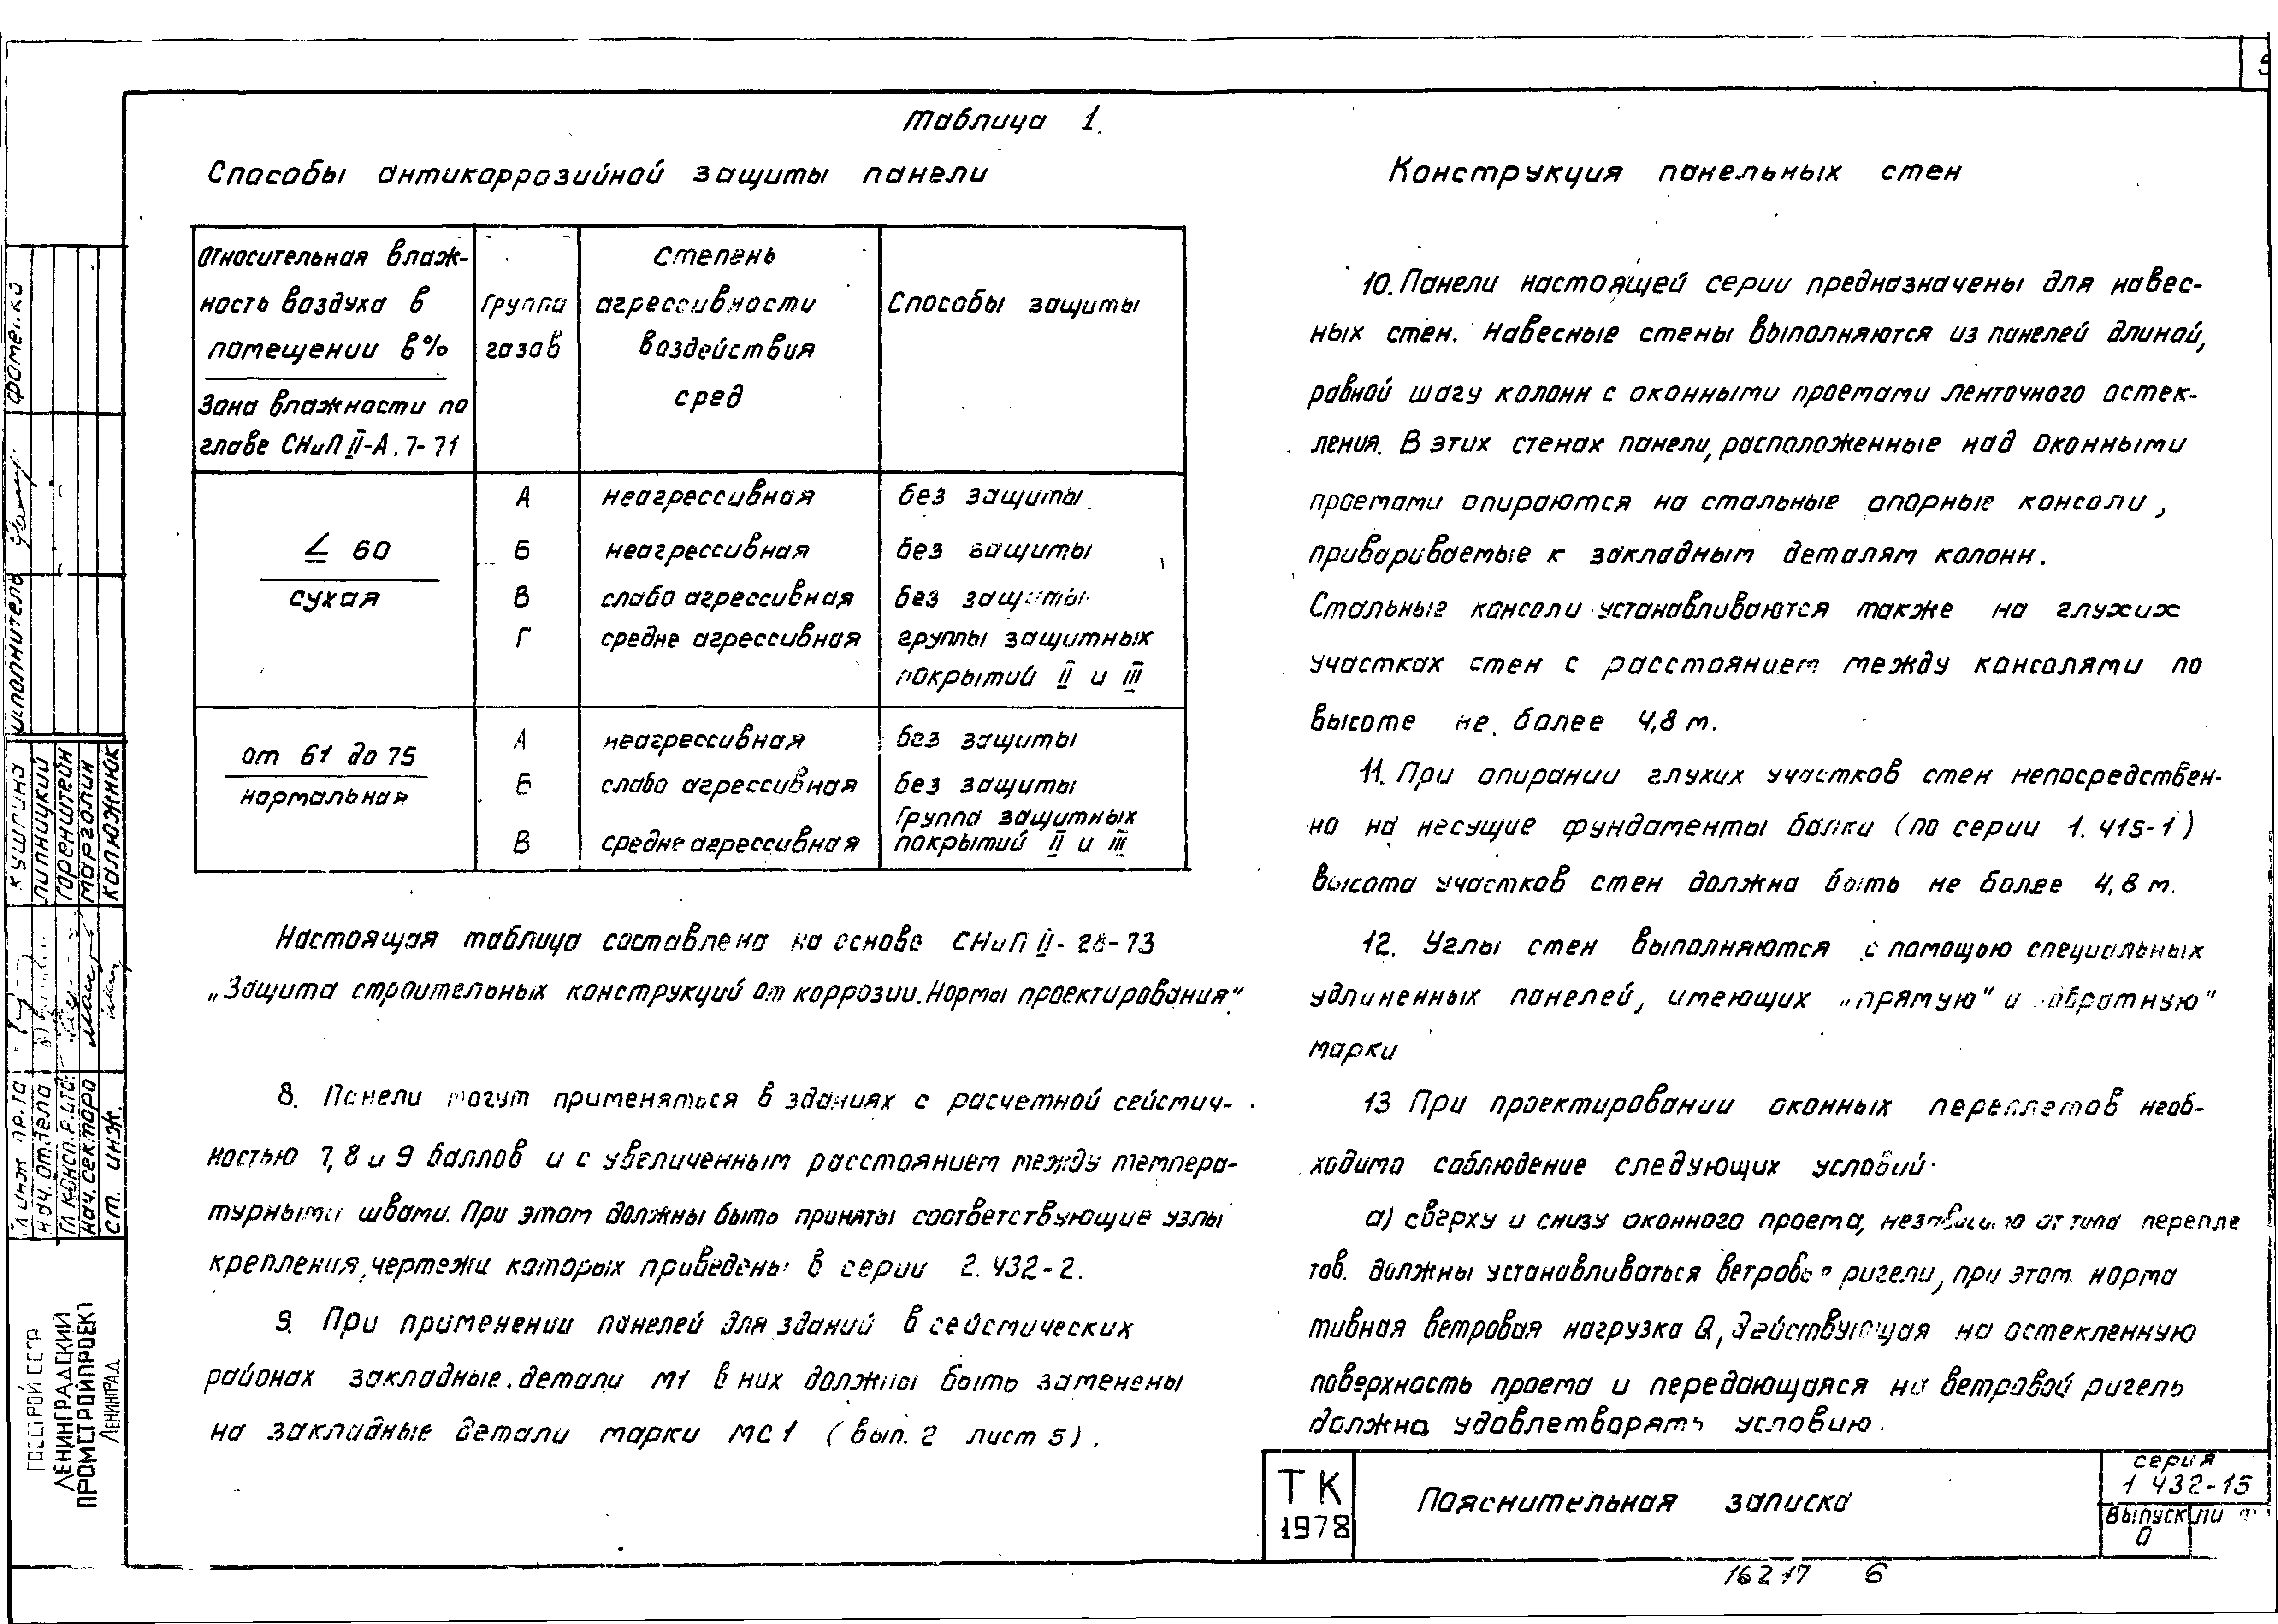 5
Таблица 1.
Способы антикоррозийной защиты панели
Относительная влаж-
ность воздуха в
помещении в%
Зона влажности по
главе СНиП II-А.7-71
Группа
газов
Степень
агрессивности
воздействия
сред
Способы защиты
≤ 60
сухая
А неагрессивная без защиты
Б неагрессивная без защиты
В слабо агрессивная без защиты
Г средне агрессивная группы защитных
покрытий II и III
от 61 до 75
нормальная
А неагрессивная без защиты
Б слабо агрессивная без защиты
Группа защитных
В средне агрессивная покрытий II и III
Настоящая таблица составлена на основе СНиП II-28-73
„Защита строительных конструкций от коррозии. Нормы проектирования“.
8. Панели могут применяться в зданиях с расчетной сейсмич-
ностью 7, 8 и 9 баллов и с увеличенным расстоянием между темпера-
турными швами. При этом должны быть приняты соответствующие узлы
крепления, чертежи которых приведены в серии 2.432-2.
9. При применении панелей для зданий в сейсмических
районах закладные детали М1 в них должны быть заменены
на закладные детали марки МС1 (вып. 2 лист 5).
Конструкция панельных стен
10. Панели настоящей серии предназначены для навес-
ных стен. Навесные стены выполняются из панелей длиной,
равной шагу колонн с оконными проемами ленточного остек-
ления. В этих стенах панели, расположенные над оконными
проемами опираются на стальные опорные консоли,
привариваемые к закладным деталям колонн.
Стальные консоли устанавливаются также на глухих
участках стен с расстоянием между консолями по
высоте не более 4,8 м.
11. При опирании глухих участков стен непосредствен-
но на несущие фундаменты балки (по серии 1.415-1)
высота участков стен должна быть не более 4,8 м.
12. Углы стен выполняются с помощью специальных
удлиненных панелей, имеющих „прямую“ и „обратную“
марки
13 При проектировании оконных переплетов необ-
ходимо соблюдение следующих условий.
а) сверху и снизу оконного проема, независимо от типа перепле
тов. должны устанавливаться ветровые ригели, при этом норма
тивная ветровая нагрузка Q, действующая на остекленную
поверхность проема и передающаяся на ветровой ригель
должна удовлетворять условию.
ТК
1978
Пояснительная записка
серия
1 432-15
Выпуск
0
16217 6
Фоменко
исполнитель
Кушпина
Липницкий
Горенштейн
Марголин
Калюжнюк
Гл инж пр.та
Нач. отдела
Гл констр.отд.
Нач. сектора
Ст. инж.
ГОССТРОЙ СССР
ЛЕНИНГРАДСКИЙ
ПРОМСТРОЙПРОЕКТ
ЛЕНИНГРАД